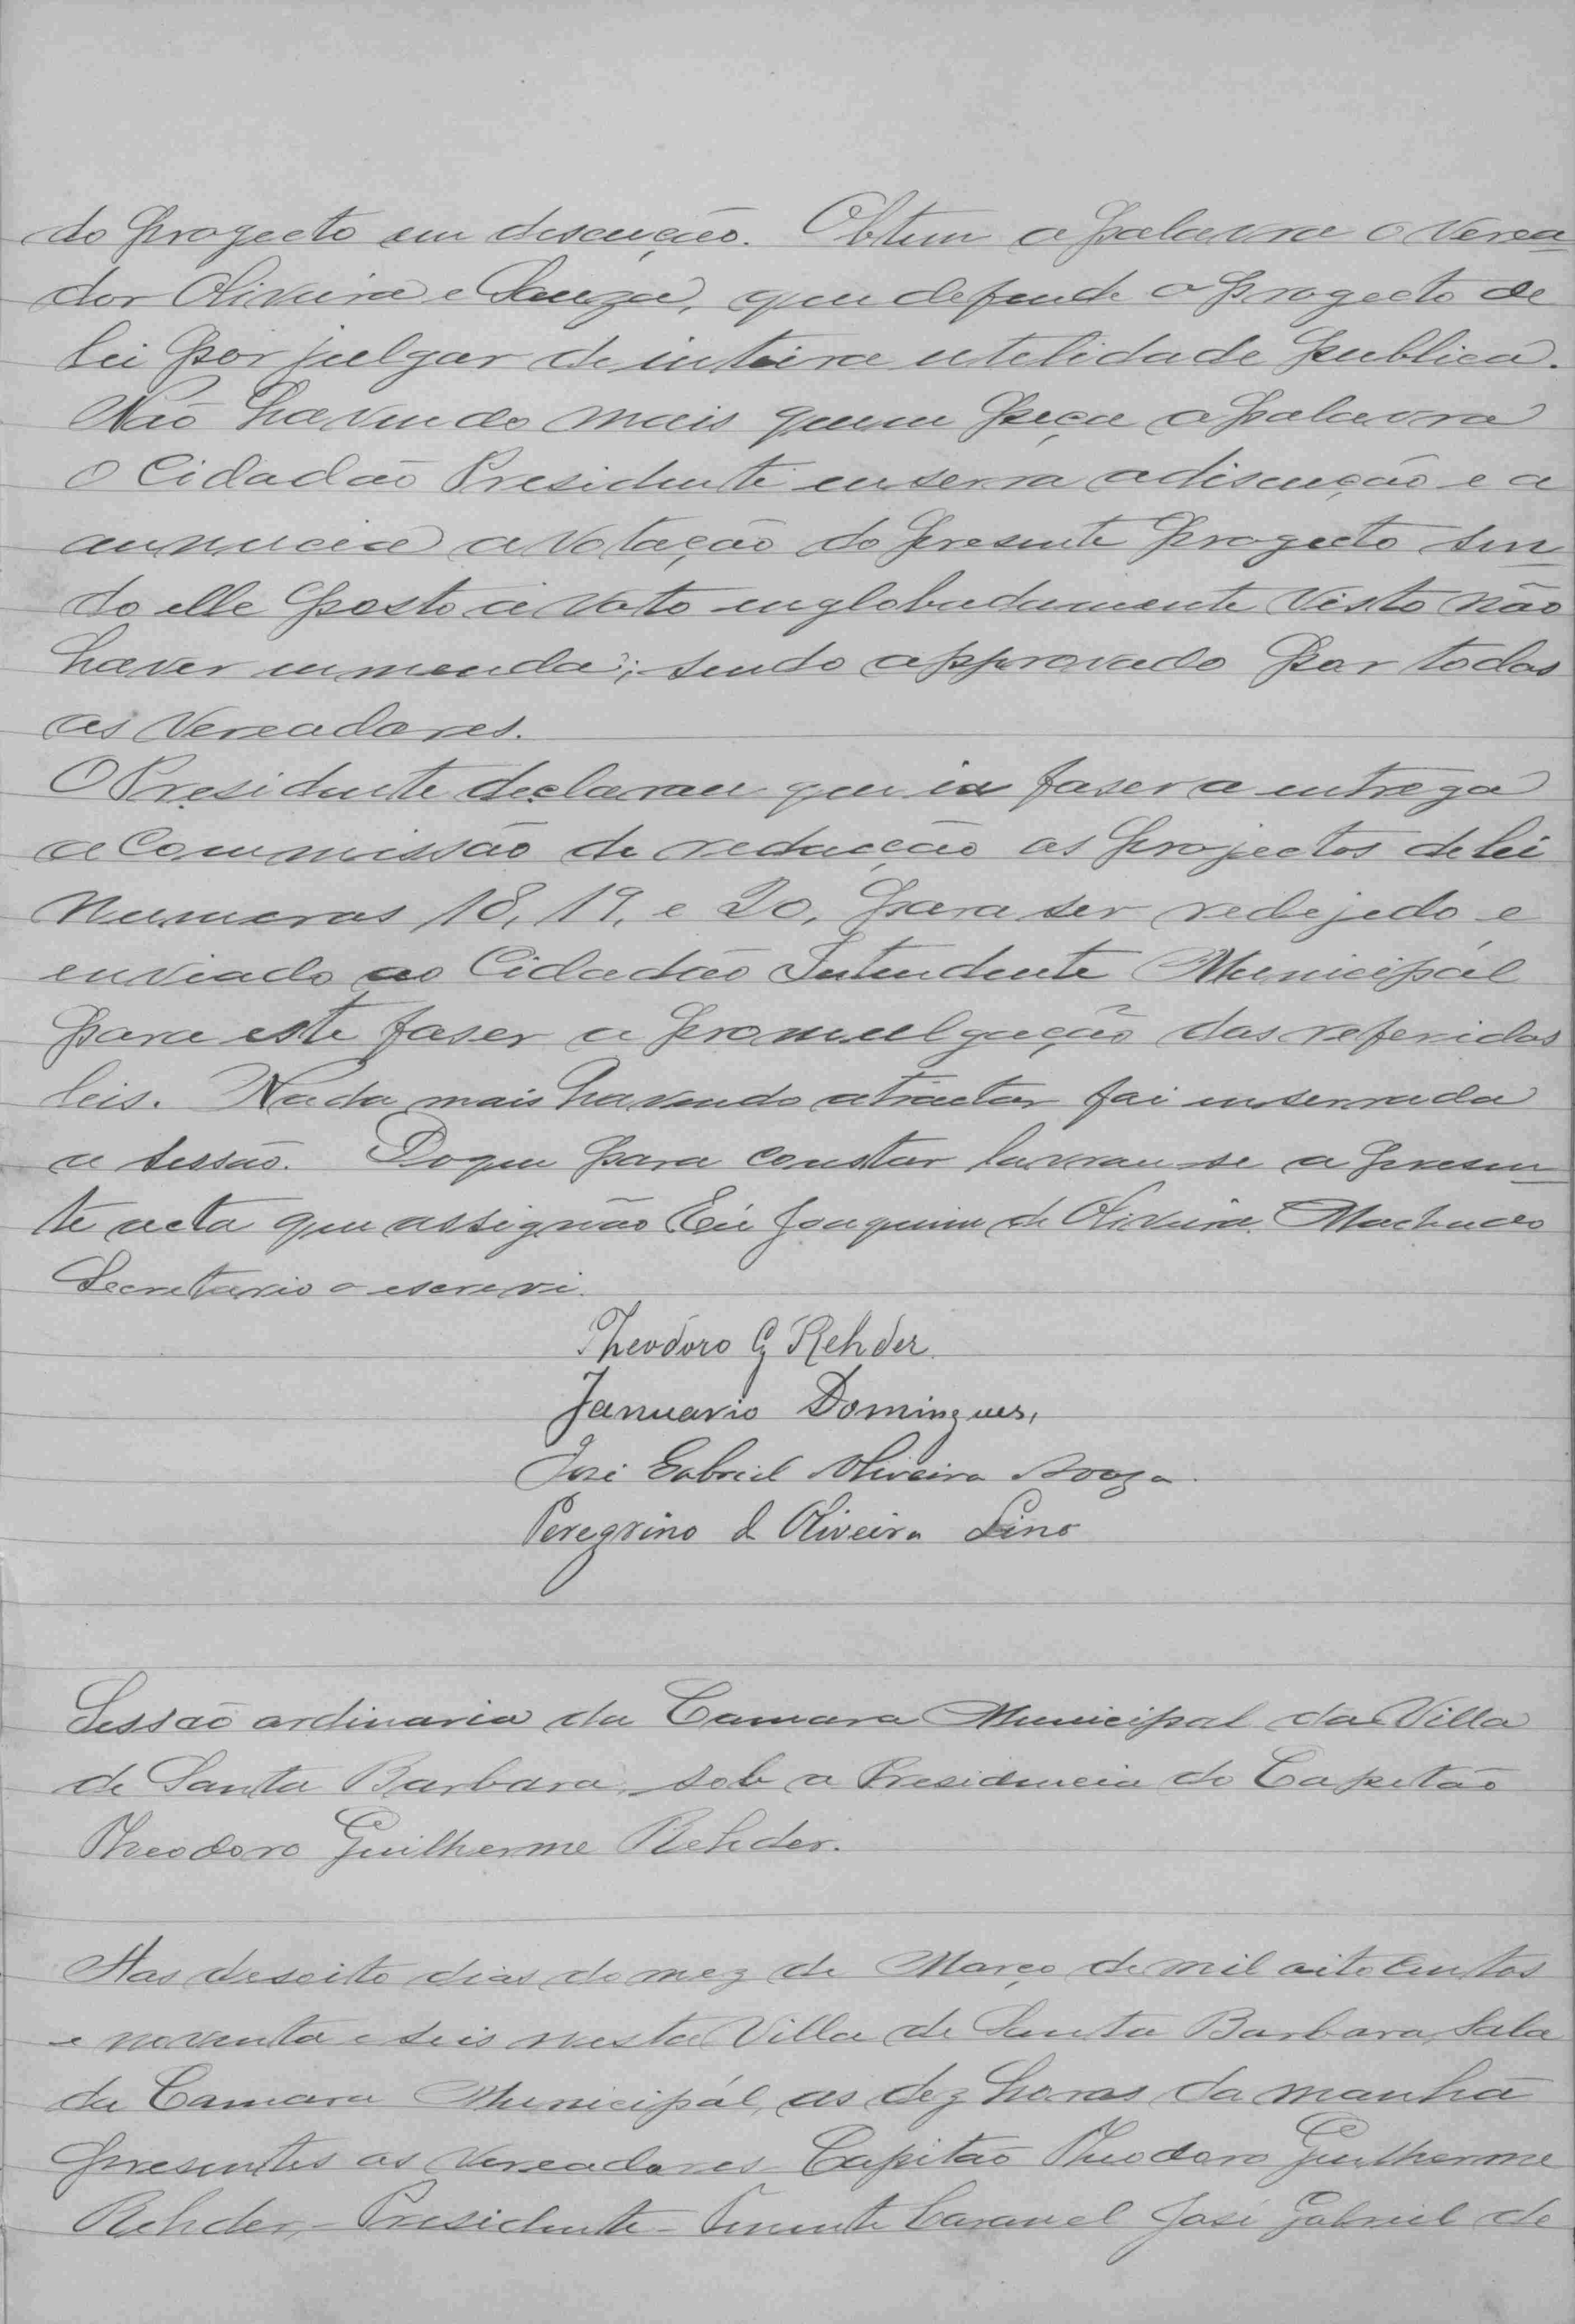 do progecto em descução. Obtem a palavra o Verea
dor Oliveira e Souza, que defende o progecto de
lei por julgar de inteira utelidade publica.
Não havendo mais quem peça a palavra
o Cidadão Presidente enserra a discução e a
annuncia a votação do presente progecto sen
do elle posto a voto englobadamente visto não
haver emmenda; sendo approvado por todos
os Vereadores.
O Presidente declarou que ia faser a entrega
a Commissão de redacção os projectos de lei
numeros 18, 19, e 20, para ser redejedo e
enviado ao Cidadão Intendente Municipál
para este faser a promulgação das referidas
leis. Nada mais havendo a tractar foi enserrada
a sessão. Do que para constar lavrou-se a presen
te acta que assignão Eu Joaquim de Oliveira Machado
Secretario o escrevi.
Theodoro G Rehder
Januario Domingues,
José Gabriel Oliveira Souza.
Peregrino d Oliveira Lino
Sessão ordinaria da Camara Municipal da Villa
de Santa Barbara, sob a Presidencia do Capitão
Theodoro Guilherme Rehder.
Aos desoito dias do mez de Março de mil oito centos
e noventa e seis nesta Villa de Santa Barbara, Sala
da Camara Municipál, as dez horas da manhã
presentes os Vereadores Capitão Theodoro Guilherme
Rehder, - Presidente - Tenente Coronel José Gabriel de